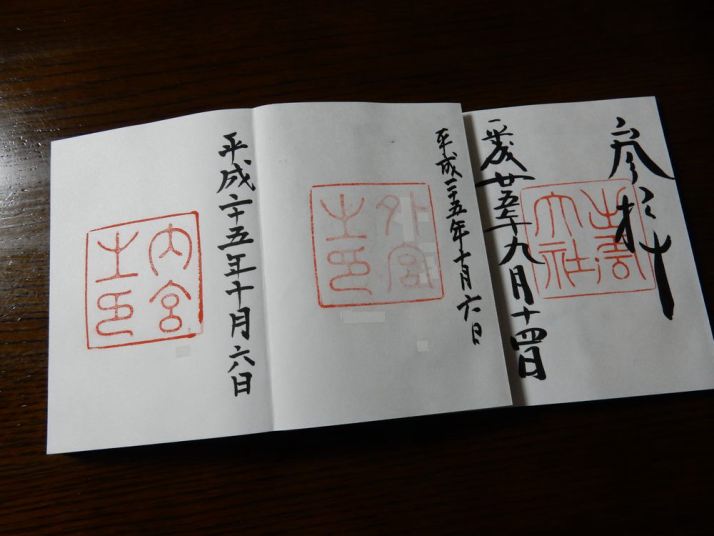 参拝
出雲
大社
平成廿五年九月十四日
平成二十五年十月六日
外宮
之印
平成二十五年十月六日
内宮
之印